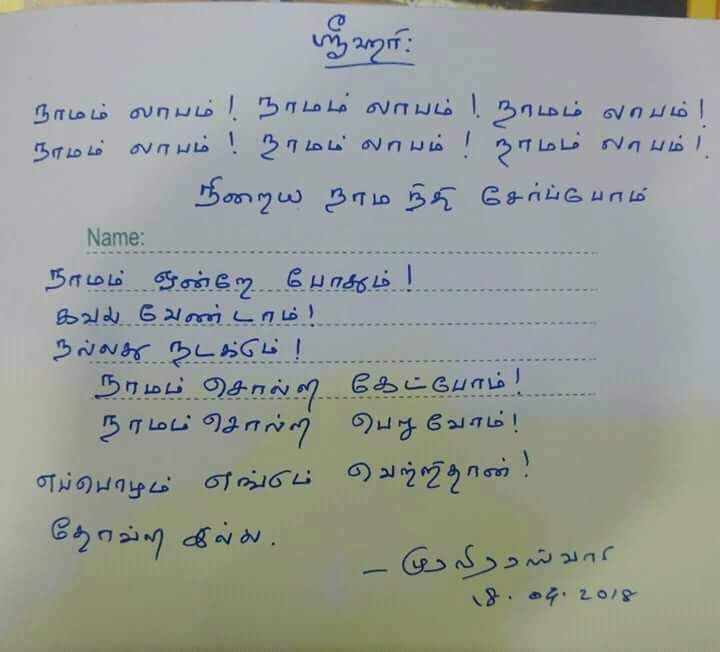 ஸ்ரீஹரி:
நாமம் லாபம்! நாமம் லாபம்! நாமம் லாபம்!
நாமம் லாபம்! நாமம் லாபம்! நாமம் லாபம்!
நிறைய நாம நிதி சேர்ப்போம்
Name:
நாமம் ஒன்றே போதும்!
கவலை வேண்டாம்!
நல்லது நடக்கும்!
நாமம் சொல்லி கேட்போம்!
நாமம் சொல்லி பெறுவோம்!
எப்பொழுதும் எங்கும் வெற்றிதான்!
தோல்வி இல்லை.
18.04.2018